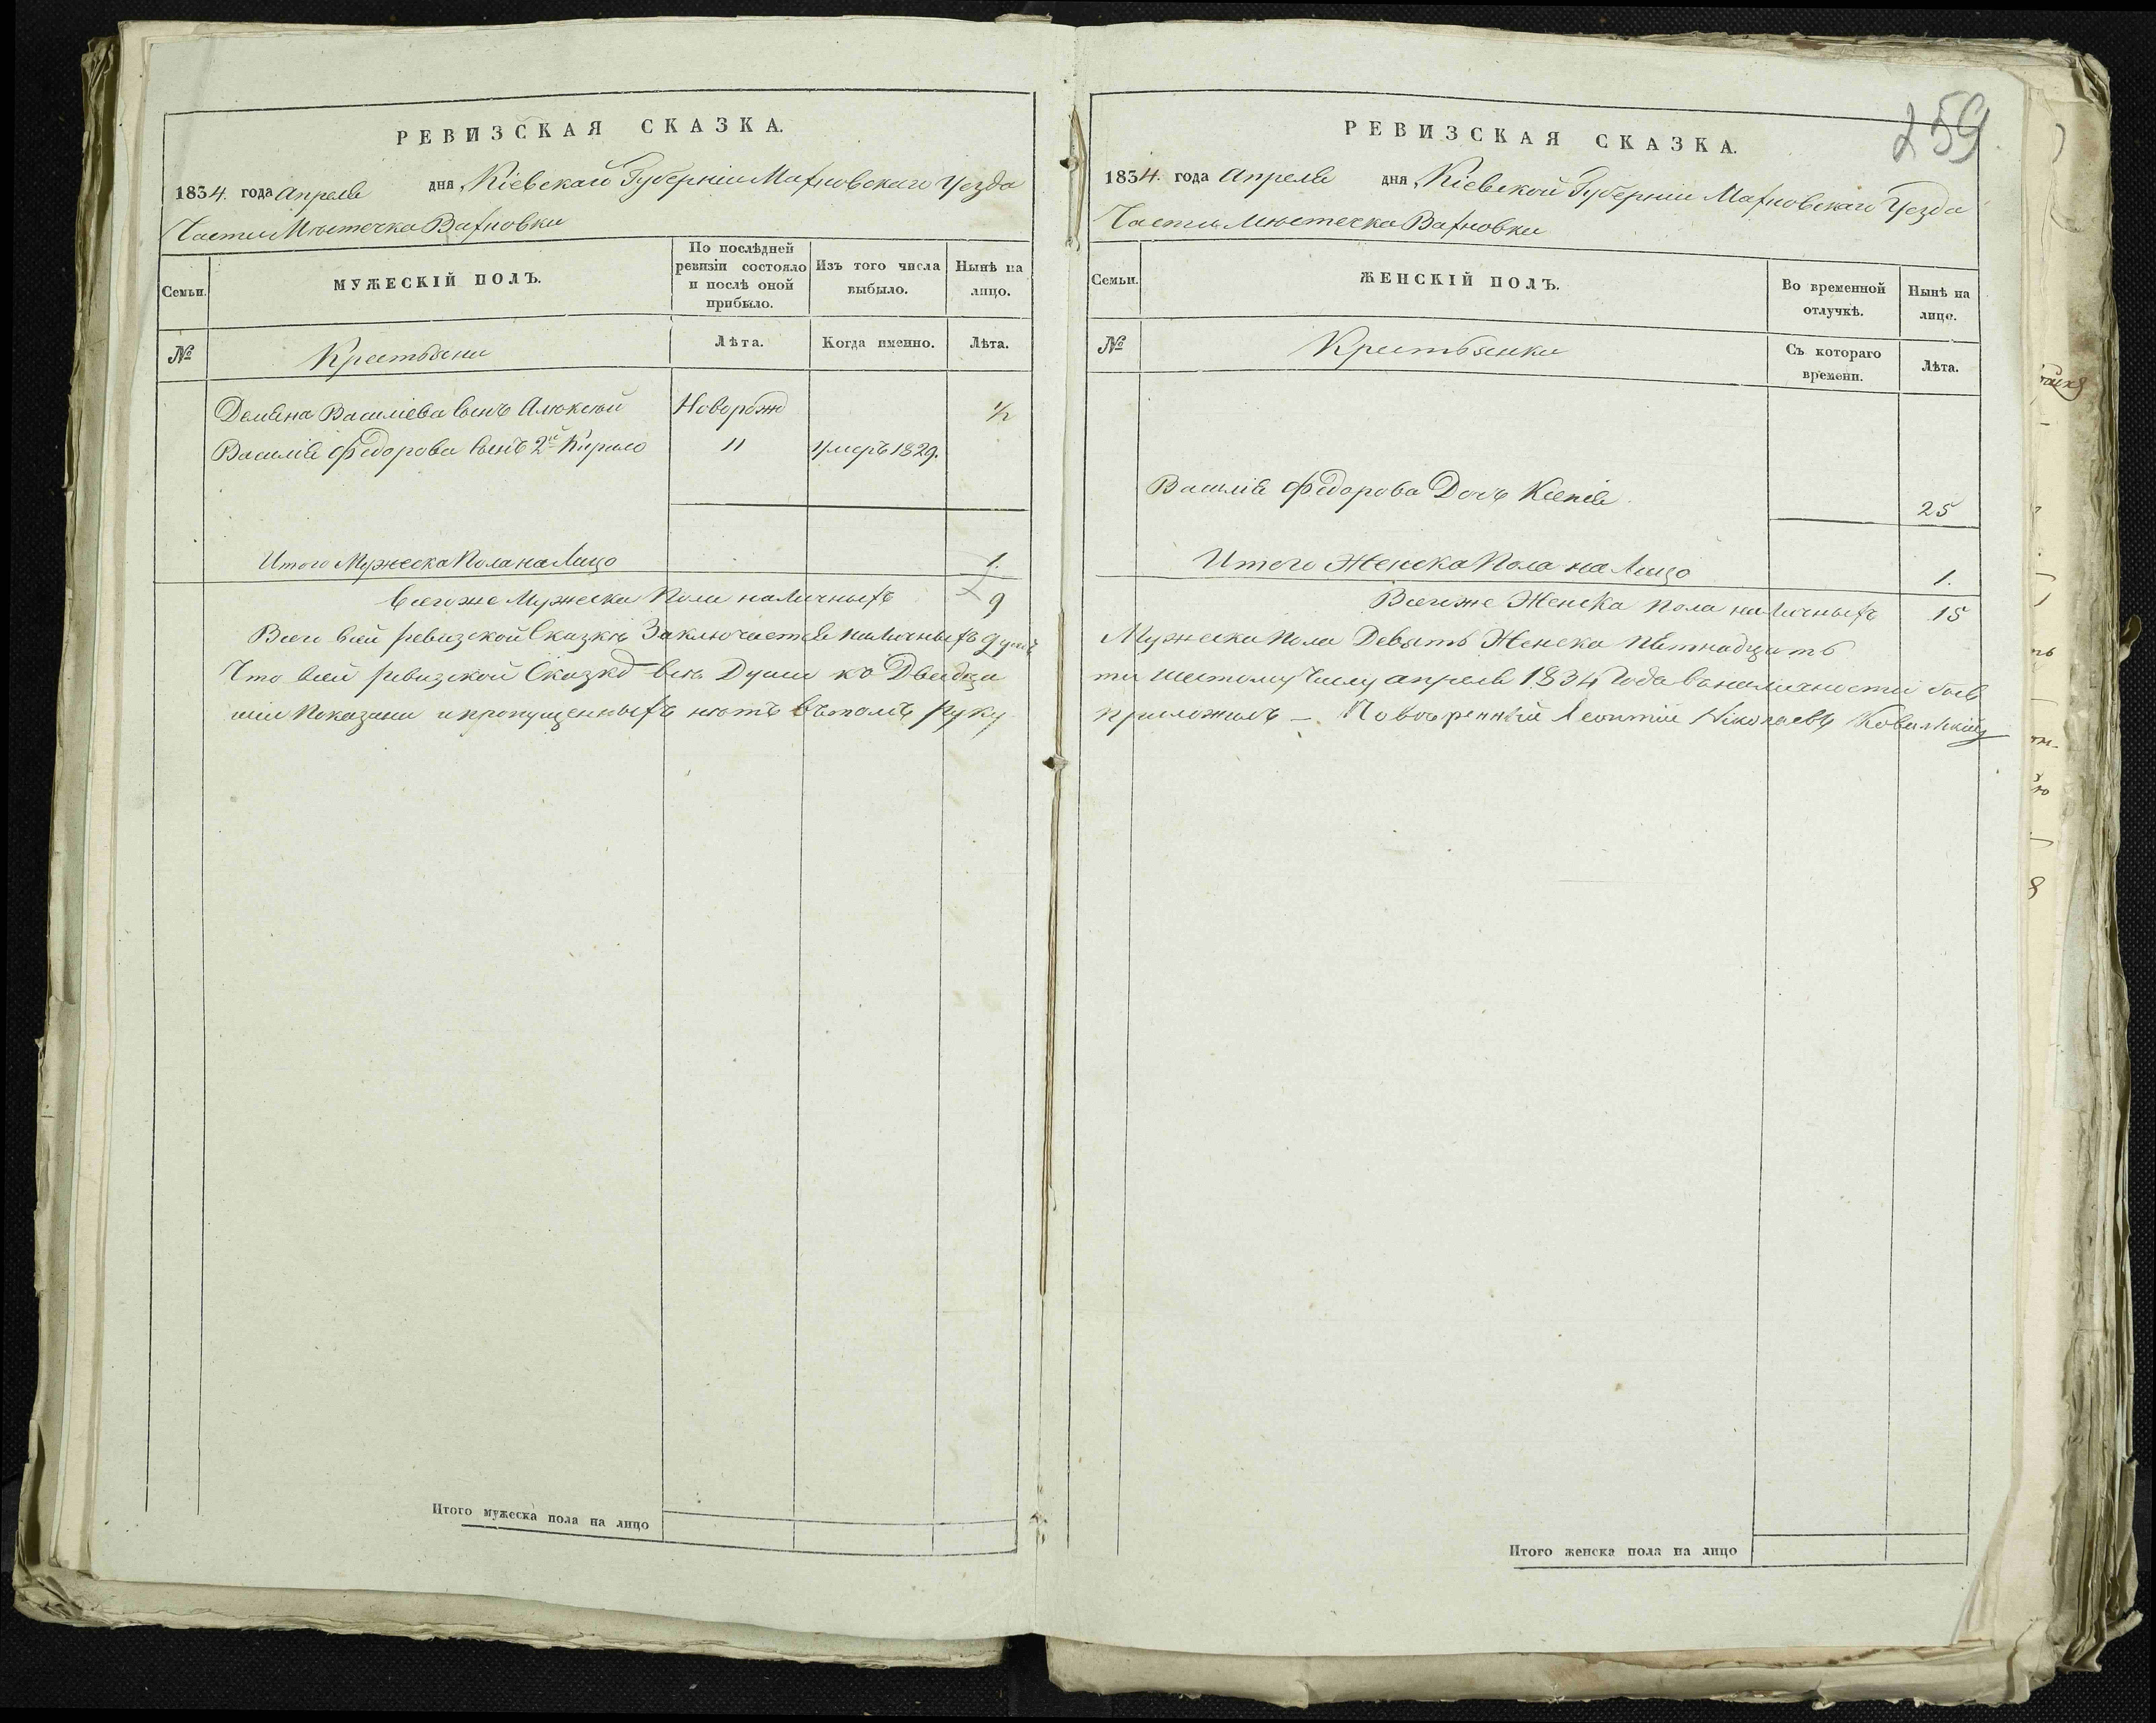 РЕВИЗСКАЯ СКАЗКА.
1834. года Апреля дня, Кіевскай Губерніи Махновскаго Уезда
Части Мѣстечка Вахновки
Семьи.
МУЖЕСКІЙ ПОЛЪ.
По послѣдней ревизіи состояло и послѣ оной прибыло.
Изъ того числа выбыло.
Нынѣ на лицо.
№
Крестьяни
Лѣта.
Когда именно.
Лѣта.
Демяна Василіева сынъ Алюксѣй Новорожд ½
Василія Федорова сынъ 2й Кирило 11 Умеръ 1829.
Итого Мужеска Пола на Лицо 1.
Всегоже Мужеска Пола наличныхъ 9
Всего всей ревизской Сказкѣ Заключается наличныхъ душъ
Что всей ревизской Сказкѣ всѣ Души ко Двадца
ніи Показани и пропущенныхъ нѣтъ вътомъ руку
Итого мужеска пола на лицо
259
РЕВИЗСКАЯ СКАЗКА.
1834. года Апреля дня, Кіевской Губерніи Махновскаго Уезда
Части Мѣстечка Вахновки
Семьи.
ЖЕНСКІЙ ПОЛЪ.
Во временной отлучкѣ.
Нынѣ на лицо.
№
Крестьянки
Съ котораго времени.
Лѣта.
Василія Федорова Дочь Ксенія 25
Итого Женска Пола на Лицо 1.
Всегоже Женска пола наличныхъ 15
Мужеска Пола Девять Женска Пѣтнадцать
ти шестому Числу апреля 1834 Года в наличности быв
приложилъ — Повѣренный Леонтій Николаевъ
Итого женска пола на лицо